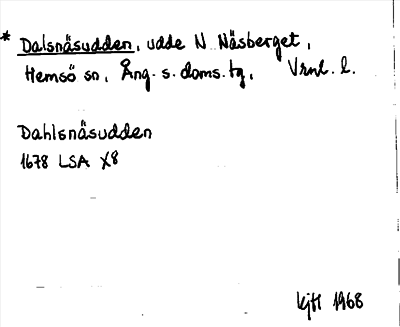 * Dalsnäsudden, udde N Näsberget,
Hemsö sn, Ång. s. doms. tg, Vrnl. l.
Dahlsnäsudden
1678 LSA X8
kjH 1968